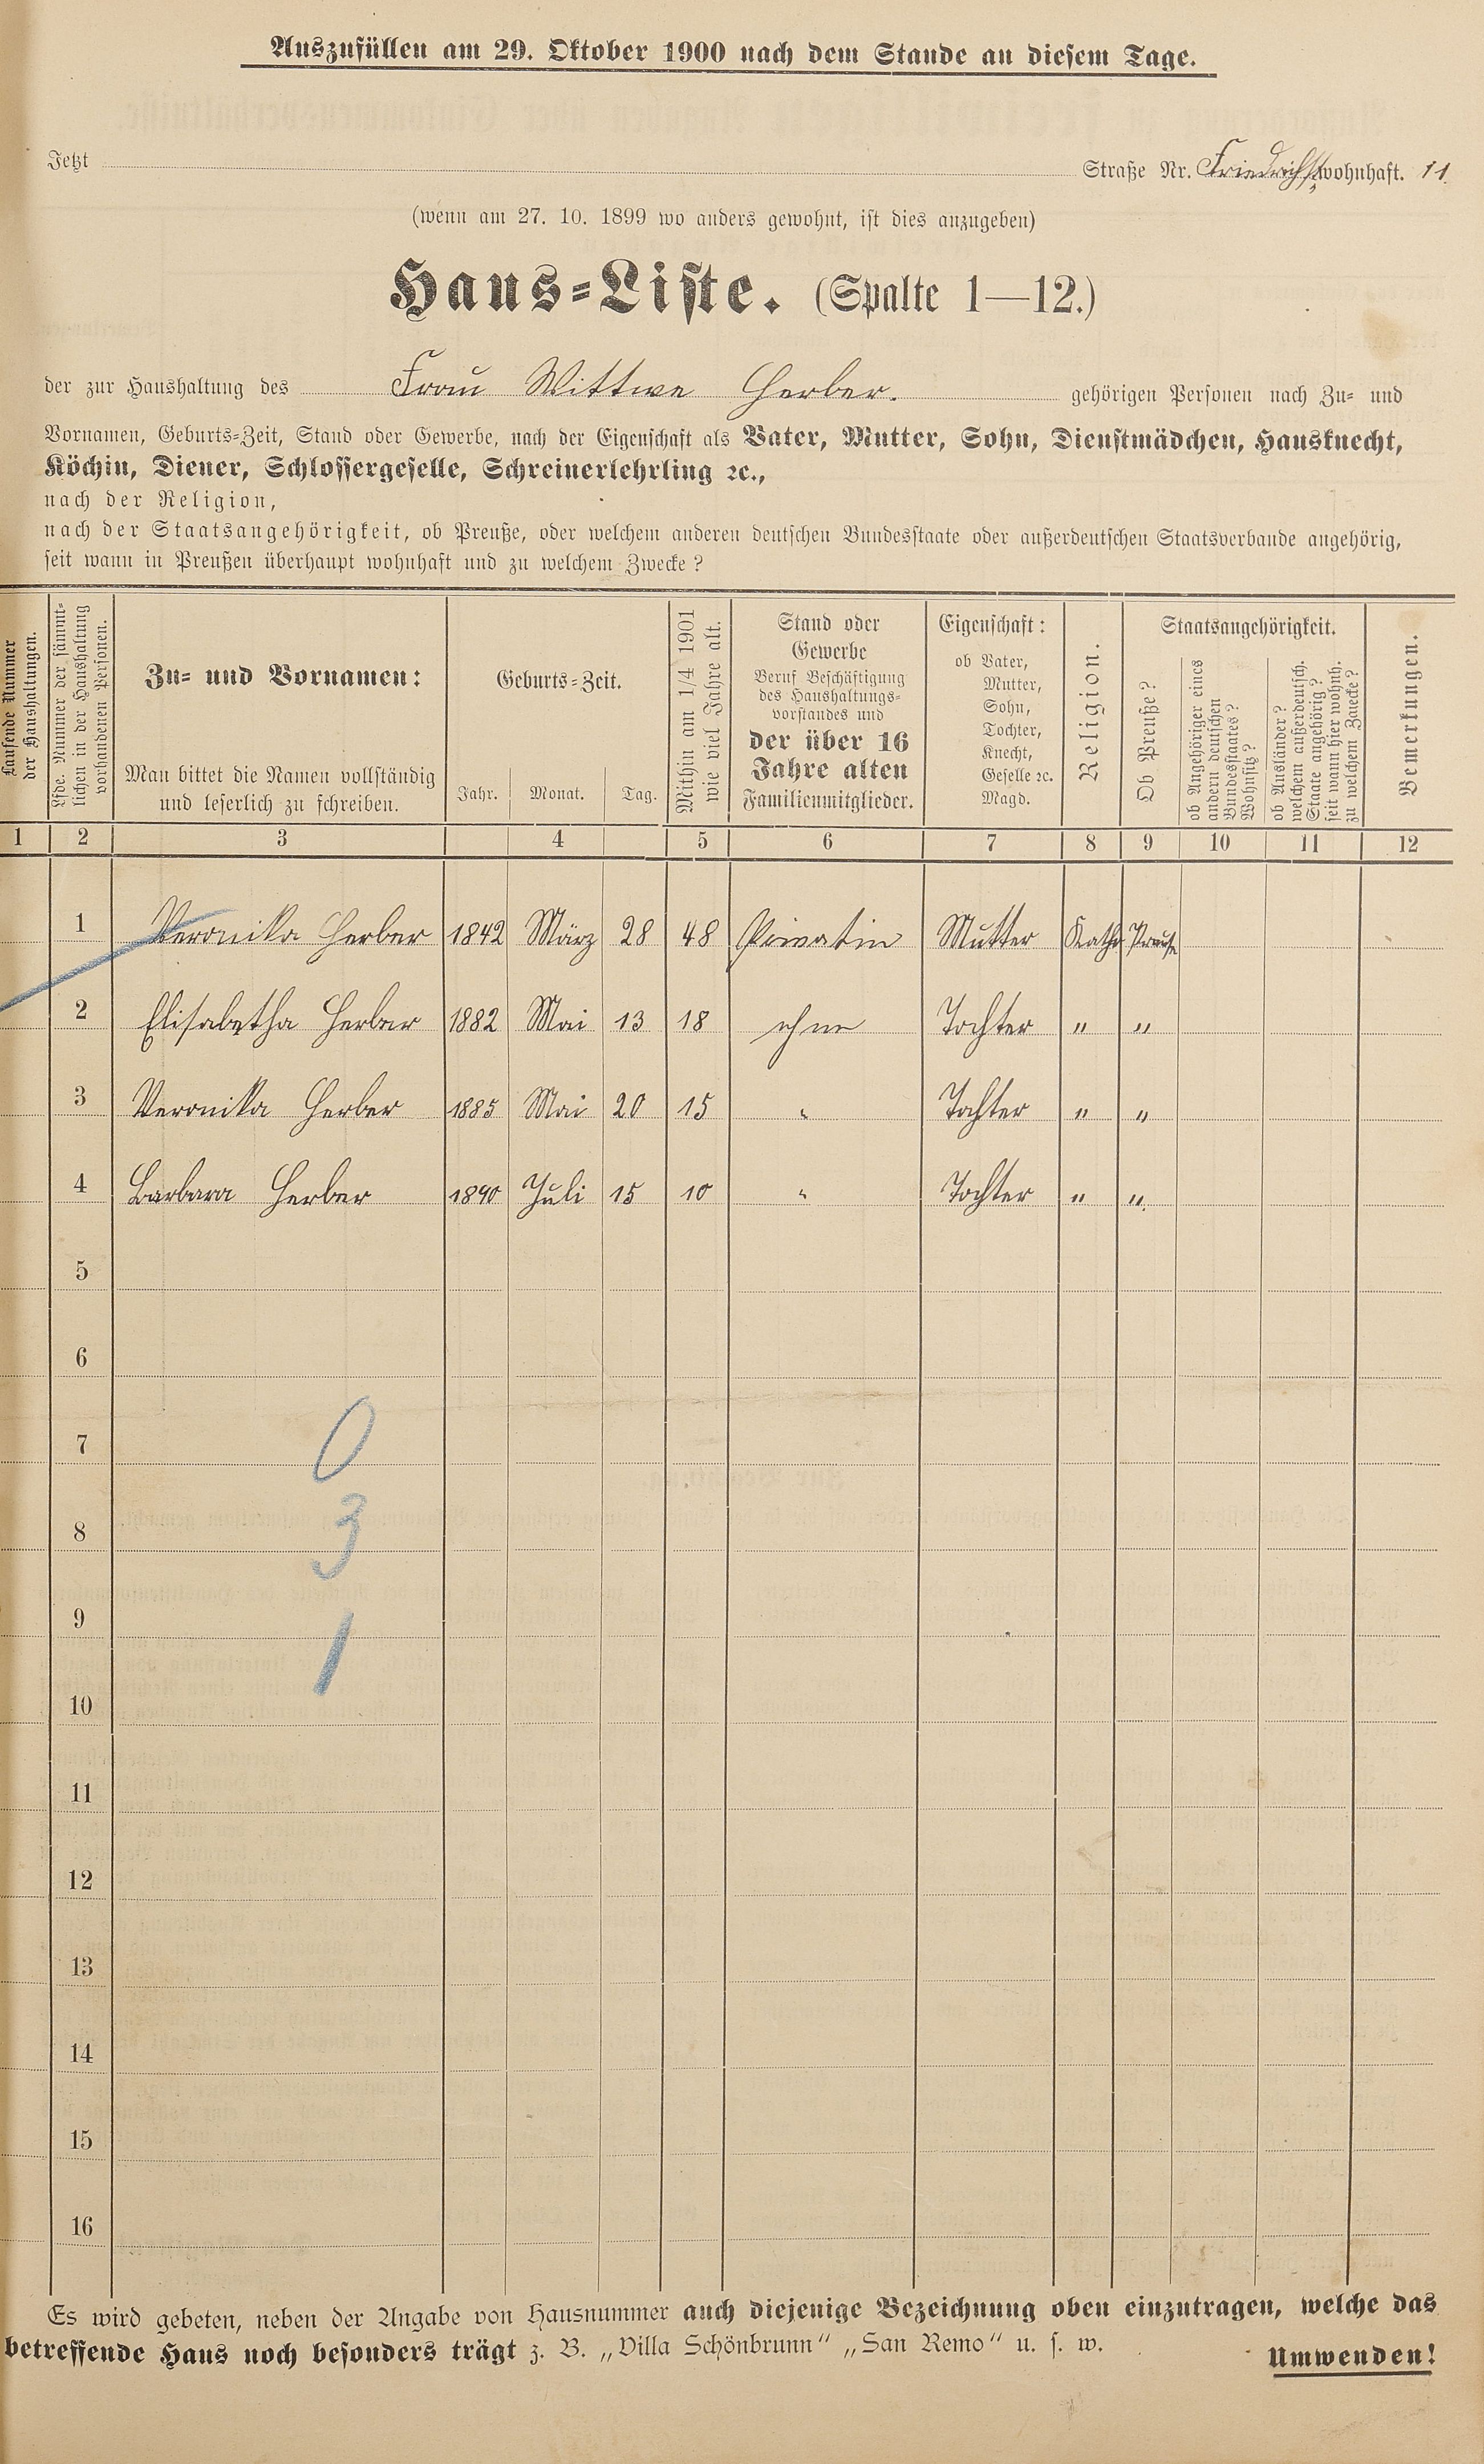 Auszufüllen am 29. Oktober 1900 nach dem Stande an diesem Tage.
Jetzt Straße Nr. Friedrichstr. wohnhaft. 11.
(wenn am 27. 10. 1899 wo anders gewohnt, ist dies anzugeben)
Haus-Liste. (Spalte 1—12.)
der zur Haushaltung des Frau Wittwe Herber. gehörigen Personen nach Zu- und
Vornamen, Geburts-Zeit, Stand oder Gewerbe, nach der Eigenschaft als Vater, Mutter, Sohn, Dienstmädchen, Hausknecht,
Köchin, Diener, Schlossergeselle, Schreinerlehrling ꝛc.,
nach der Religion,
nach der Staatsangehörigkeit, ob Preuße, oder welchem anderen deutschen Bundesstaate oder außerdeutschen Staatsverbande angehörig,
seit wann in Preußen überhaupt wohnhaft und zu welchem Zwecke?
Laufende Nummer
der Haushaltungen.
Lfde. Nummer der sämmt-
lichen in der Haushaltung
vorhandenen Personen.
Zu- und Vornamen:
Man bittet die Namen vollständig
und leserlich zu schreiben.
Geburts-Zeit.
Jahr. Monat. Tag.
Mithin am 1/4 1901
wie viel Jahre alt.
Stand oder
Gewerbe
Beruf Beschäftigung
des Haushaltungs-
vorstandes und
der über 16
Jahre alten
Familienmitglieder.
Eigenschaft:
ob Vater,
Mutter,
Sohn,
Tochter,
Knecht,
Geselle ꝛc.
Magd.
Religion.
Staatsangehörigkeit.
Ob Preuße?
ob Angehöriger eines
andern deutschen
Bundesstaates?
Wohnsitz?
ob Ausländer?
welchem außerdeutsch.
Staate angehörig?
seit wann hier wohnh.
zu welchem Zwecke?
Bemerkungen.
1 2 3 4 5 6 7 8 9 10 11 12
1 Veronika Herber 1842 März 28 48 Privatin Mutter Kath. Preuße
2 Elisabetha Herber 1882 Mai 13 18 ohne Tochter " "
3 Veronika Herber 1885 Mai 20 15 " Tochter " "
4 Barbara Herber 1890 Juli 15 10 " Tochter " "
5
6
7 0
8 3
9 1
10
11
12
13
14
15
16
Es wird gebeten, neben der Angabe von Hausnummer auch diejenige Bezeichnung oben einzutragen, welche das
betreffende Haus noch besonders trägt z. B. „Villa Schönbrunn" „San Remo" u. s. w.
Umwenden!